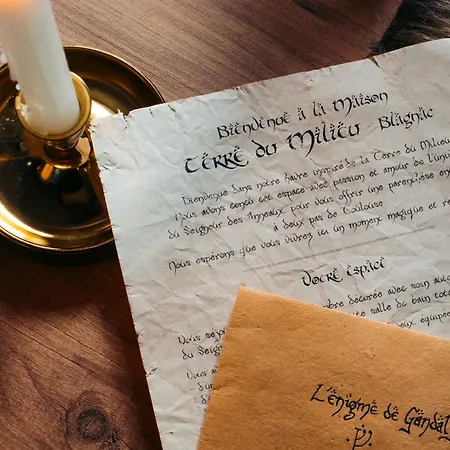 Bienvenue à la Maison
Terre du Milieu Blagnac
Bienvenue dans notre havre inspiré de la Terre du Milieu
Nous avons conçu cet espace avec passion et amour de l'uni
du Seigneur des Anneaux, pour vous offrir une parenthèse en
à deux pas de Toulouse
Nous espérons que vous vivrez ici un moment magique et re
Votre espace
bre décorée avec soin auto
te salle de bain
eux, équipée
Vous sejo
du Seig
Vous a
L'énigme de Gandal